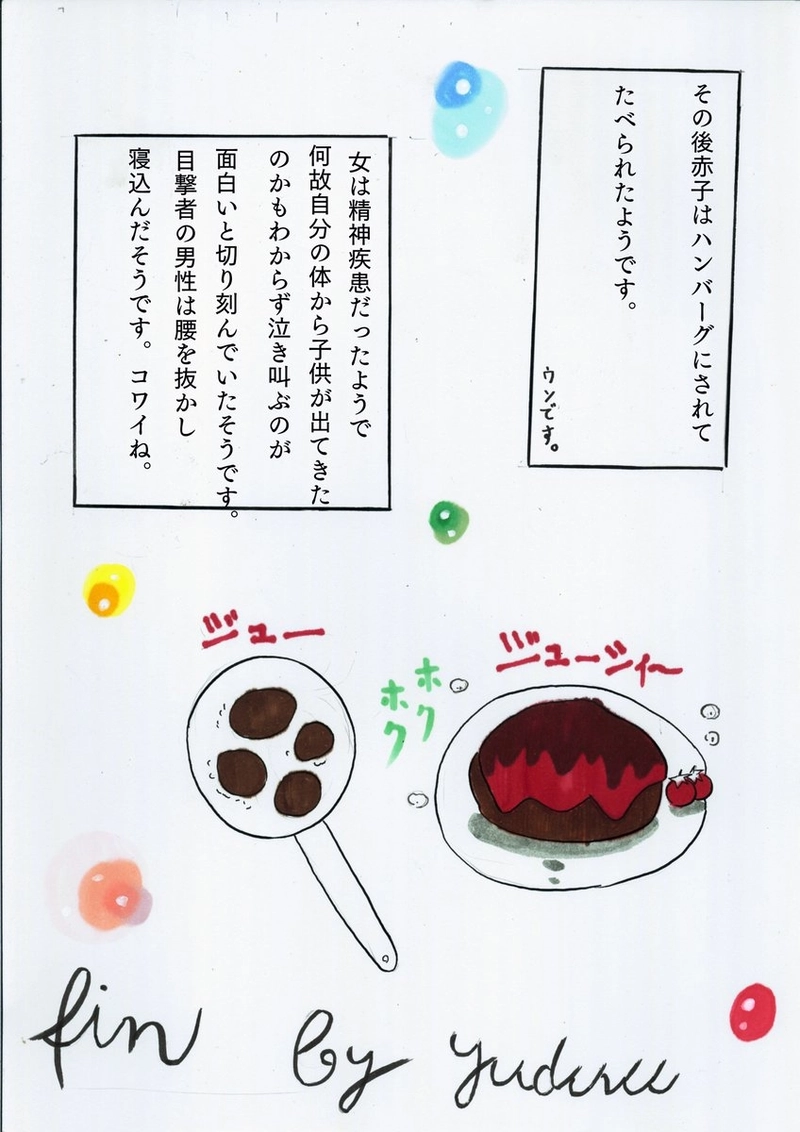 その後赤子はハンバーグにされて
たべられたようです。
ウソです。
女は精神疾患だったようで
何故自分の体から子供が出てきた
のかもわからず泣き叫ぶのが
面白いと切り刻んでいたそうです。
目撃者の男性は腰を抜かし
寝込んだそうです。コワイね。
ジュー
ホク
ホク
ジューシィ～
fin by yuderu